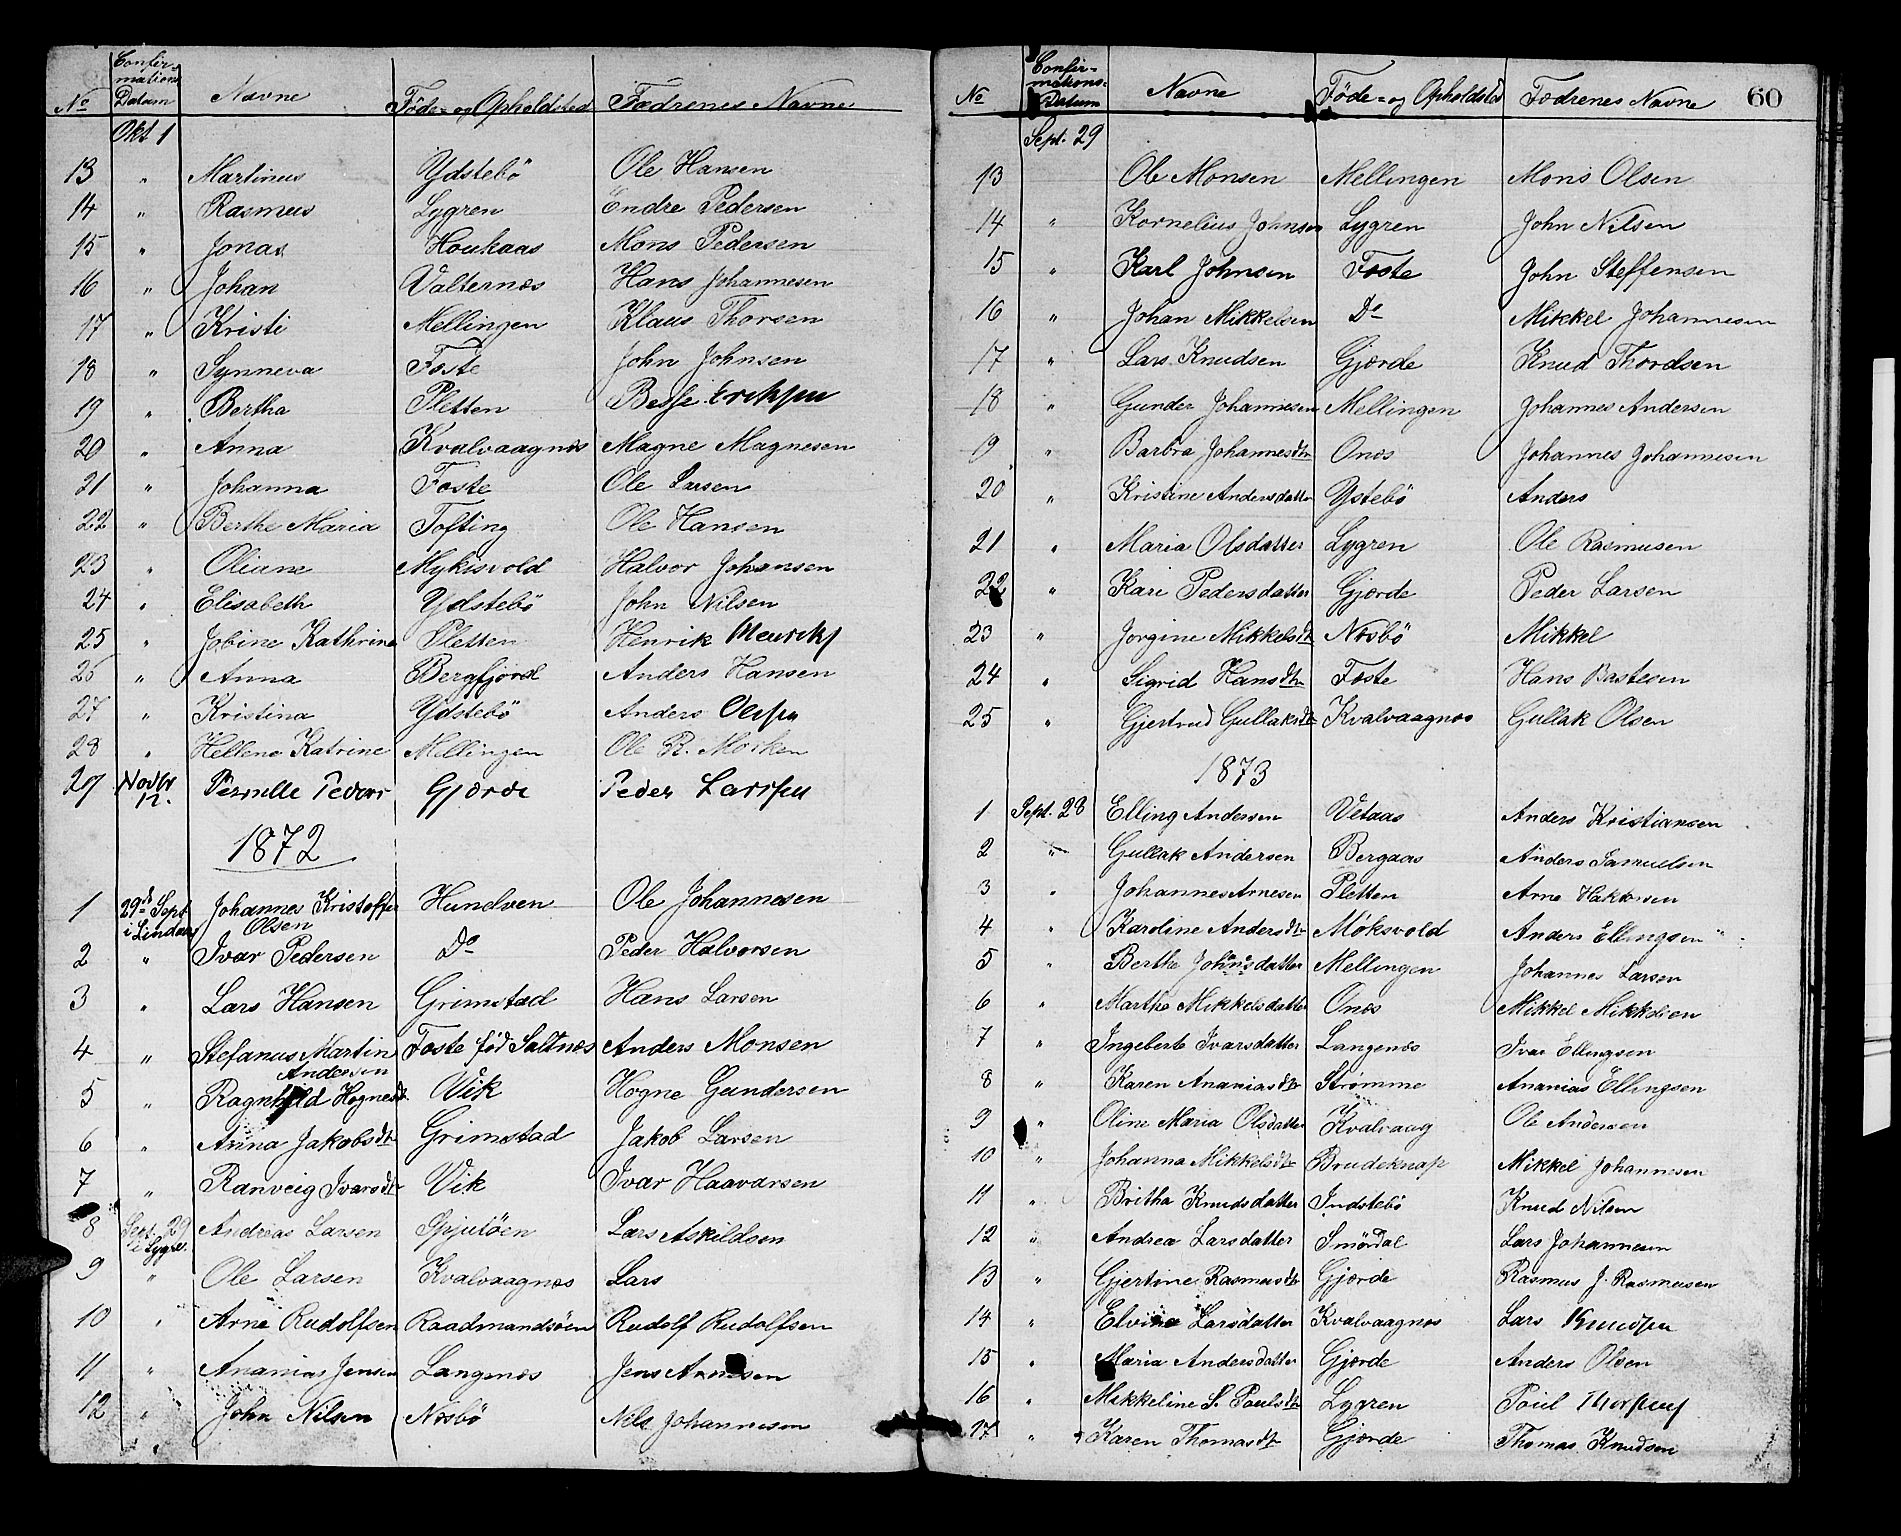 No Confirmations Datum Navne Føde- og Opholdsted Fædrenes Navne
Okt 1
13 " Martinus Ydstebö Ole Hansen
14 " Rasmus Lygren Endre Pedersen
15 " Jonas Houkaas Mons Pedersen
16 " Johan Valternæs Hans Johannesen
17 " Kristi Mellingen Klaus Thorsen
18 " Synneva Foste John Johnsen
19 " Bertha Pletten Besse Eriksen
20 " Anna Kvalvaagnæs Magne Magnesen
21 " Johanna Foste Ole Larsen
22 " Berthe Maria Tofting Ole Hansen
23 " Oliane Myksvold Halvor Johansen
24 " Elisabeth Ydstebö John Nilsen
25 " Jobine Kathrine Pletten Henrik Henriks
26 " Anna Bergfjord Anders Hansen
27 " Kristina Ydstebö Anders Olesen
28 " Hellene Katrine Mellingen Ole R. Morken
29 Novbr 12. Pernille Peders Gjærde Peder Larssen
1872
1 29de Sept i Lindaas Johannes Kristoffer Olsen Hundven Ole Johannesen
2 " Ivar Pedersen Do Peder Halvorsen
3 " Lars Hansen Grimstad Hans Larsen
4 " Stefanus Martin Andersen Foste fød Saltnæs Anders Monsen
5 " Ragnhild Hognesdt. Vik Hogne Gundersen
6 " Anna Jakobsdtr Grimstad Jakob Larsen
7 " Ranveig Ivarsdtr Vik Ivar Haavarsen
8 Sept. 29 i Lygre. Andreas Larsen Spjutöen Lars Askildsen
9 " Ole Larsen Kvalvaagnæs Lars
10 " Arne Rudolfsen Raadmandsöen Rudolf Rudolfsen
11 " Ananias Jensen Langenæs Jens Arnesen
12 " John Nilsen Næsbö Nils Johannesen
No Confirmations-Datum Navne Føde- og Opholdsted Fædrenes Navne 60
Sept. 29
13 Ole Monsen Mellingen Mons Olsen
14 " Kornelius Johnsen Lygren John Nilsen
15 " Karl Johnsen Foste John Steffensen
16 " Johan Mikkelsen Do Mikkel Johannesen
17 " Lars Knudsen Gjærde Knud Thordsen
18 " Gunder Johannesen Mellingen Johannes Andersen
19 " Barbra Johannesdtr Onæs Johannes Johannesen
20 " Kristine Andersdatter Ystebö Anders
21 " Maria Olsdatter Lygren Ole Rasmusen
22 " Kari Pedersdatter Gjærde Peder Larsen
23 " Jorgine Mikkelsdtr Næsbö Mikkel
24 " Sigrid Hansdtr Foste Hans Bastesen
25 " Gjertrud Gullaksdtr Kvalvaagnæs Gullak Olsen
1873
1 Sept. 28 Elling Andersen Vetaas Anders Kristiansen
2 " Gullak Andersen Bergaas Anders Samuelsen
3 " Johannes Arnesen Pletten Arne Haktorsen
4 " Karoline Andersdtr Möksvold Anders Ellingsen
5 " Berthe Johnsdatter Mellingen Johannes Larsen
6 " Marthe Mikkelsdatter Onæs Mikkel Mikkelsen
7 " Ingebert Ivarsdatter Langenæs Ivar Ellingsen
8 " Karen Ananiasdtr Strömme Ananias Ellingsen
9 " Oline Maria Olsdatter Kvalvaag Ole Andersen
10 " Johanna Mikkelsdtr Brudeknap Mikkel Johannesen
11 " Britha Knudsdatter Indstebö Knud Nilsen
12 " Andrea Larsdatter Smördal Lars Johannesen
13 " Gjertine Rasmusdtr Gjærde Rasmus J. Rasmusen
14 " Elvine Larsdatter Kvalvaagnæs Lars Knudsen
15 " Maria Andersdatter Gjærde Anders Olsen
16 " Mikkeline S. Paulsdtr Lygren Poul Thorsen
17 " Karen Thomasdtr Gjærde Thomas Knudsen